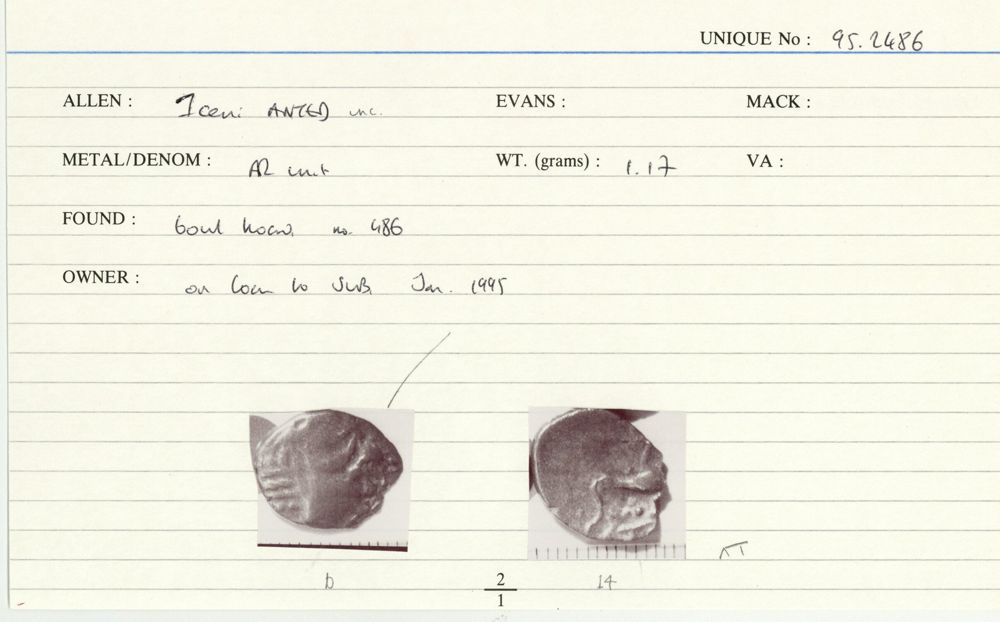 UNIQUE No : 95.2486
ALLEN : Iceni ANTED inc. EVANS : MACK :
METAL/DENOM : AR unit WT. (grams) : 1.17 VA :
FOUND : bowl hoard, no. 486
OWNER : on loan to Jan. 1995
b 2/1 14